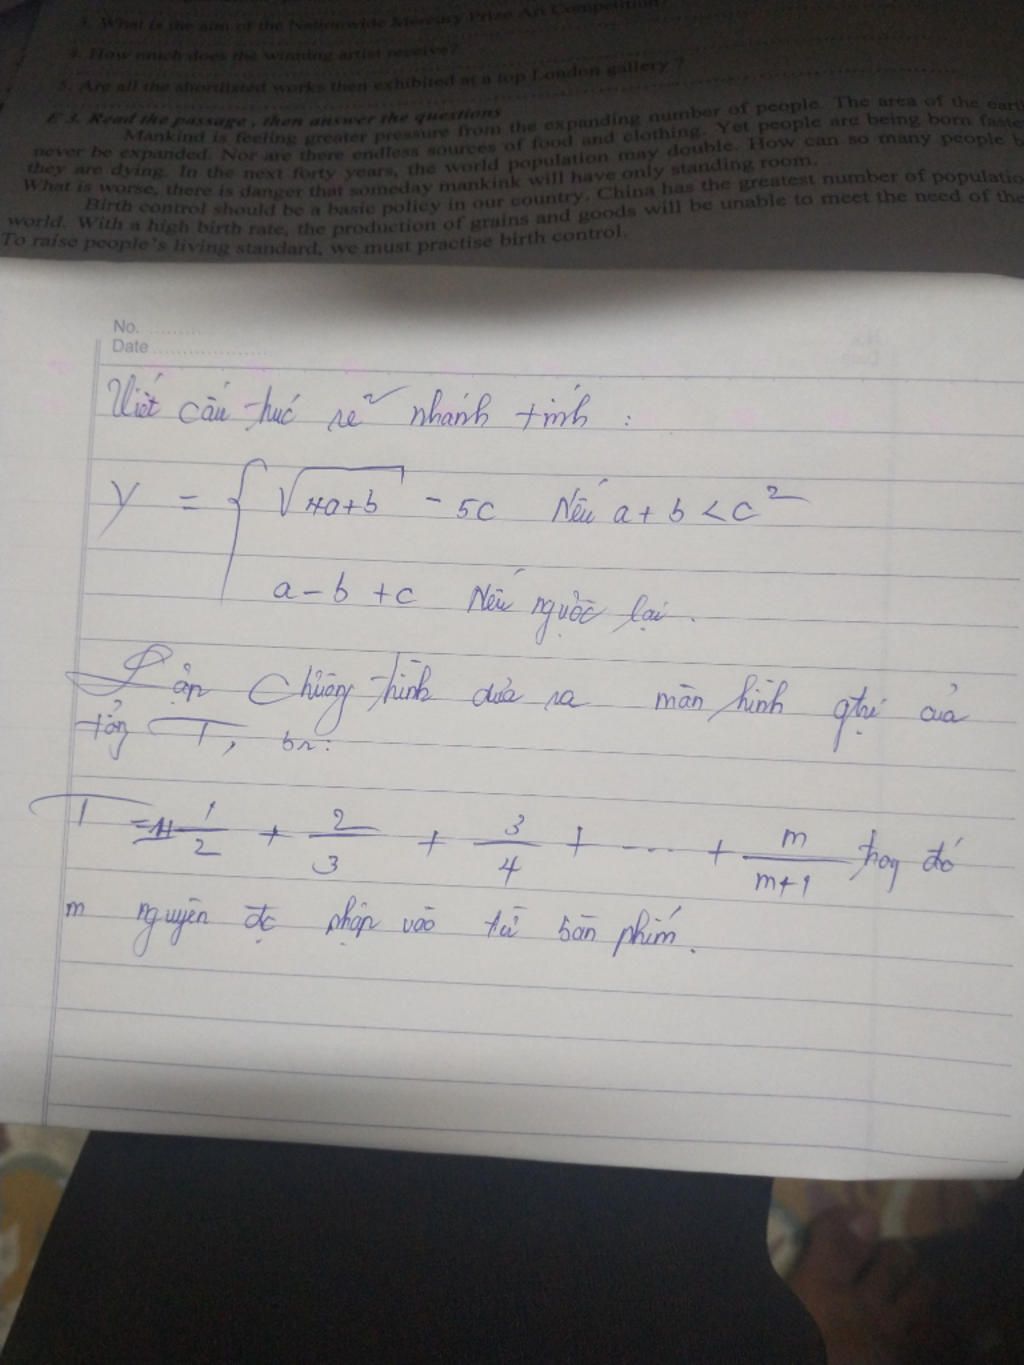 3. What is the aim of the Nationwide Mercury Prize Art Competition?
4. How much does the winning artist receive?
5. Are all the shortlisted works then exhibited at a top London gallery ?
E 3. Read the passage , then answer the questions
Mankind is feeling greater pressure from the expanding number of people. The area of the eart
never be expanded. Nor are there endless sources of food and clothing. Yet people are being born faste
they are dying. In the next forty years, the world population may double. How can so many people b
What is worse, there is danger that someday mankink will have only standing room.
Birth control should be a basic policy in our country. China has the greatest number of populatio
world. With a high birth rate, the production of grains and goods will be unable to meet the need of the
To raise people's living standard, we must practise birth control.
No.
Date
Viết câu thức rẽ nhánh tính :
Y = { √4a+b - 5c Nếu a + b < c²
a - b + c Nếu ngược lại .
Lập Chương trình đưa ra màn hình gtrị của
tổng T, br:
T = 1/2 + 2/3 + 3/4 + .... + m/m+1 trong đó
m nguyên đc nhập vào từ bàn phím.